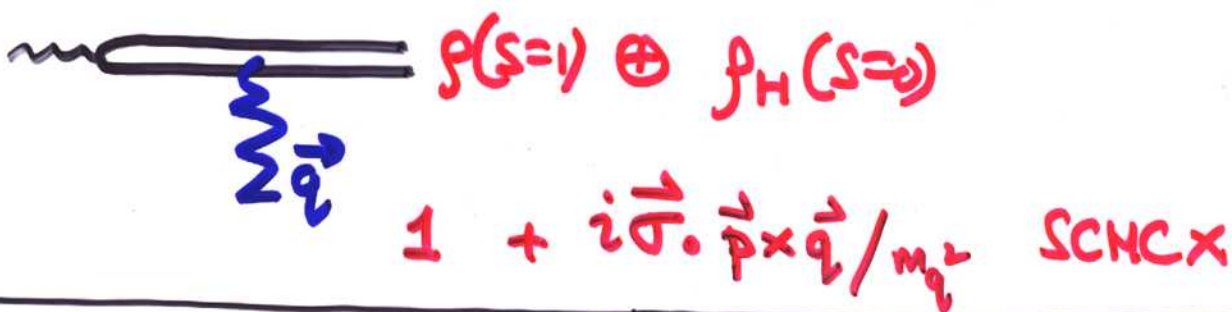 ρ(S=1) ⊕ ρ_H(S=0)
q⃗
1 + i σ⃗ · p⃗ × q⃗ / m_q² SCHC×